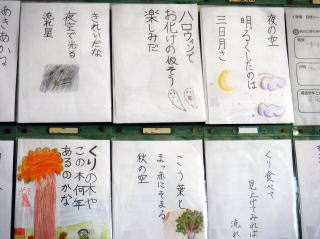 夜の空
明るくしたのは
三日月さ
ハロウィンで
お化けの仮そう
楽しみだ
きれいだな
夜空で光る
流れ星
あきあかね
くり食べて
見上げてみれば
流れ
こう葉と
まっ赤にそまる
秋の空
くりの木や
この木何年
あるのかな